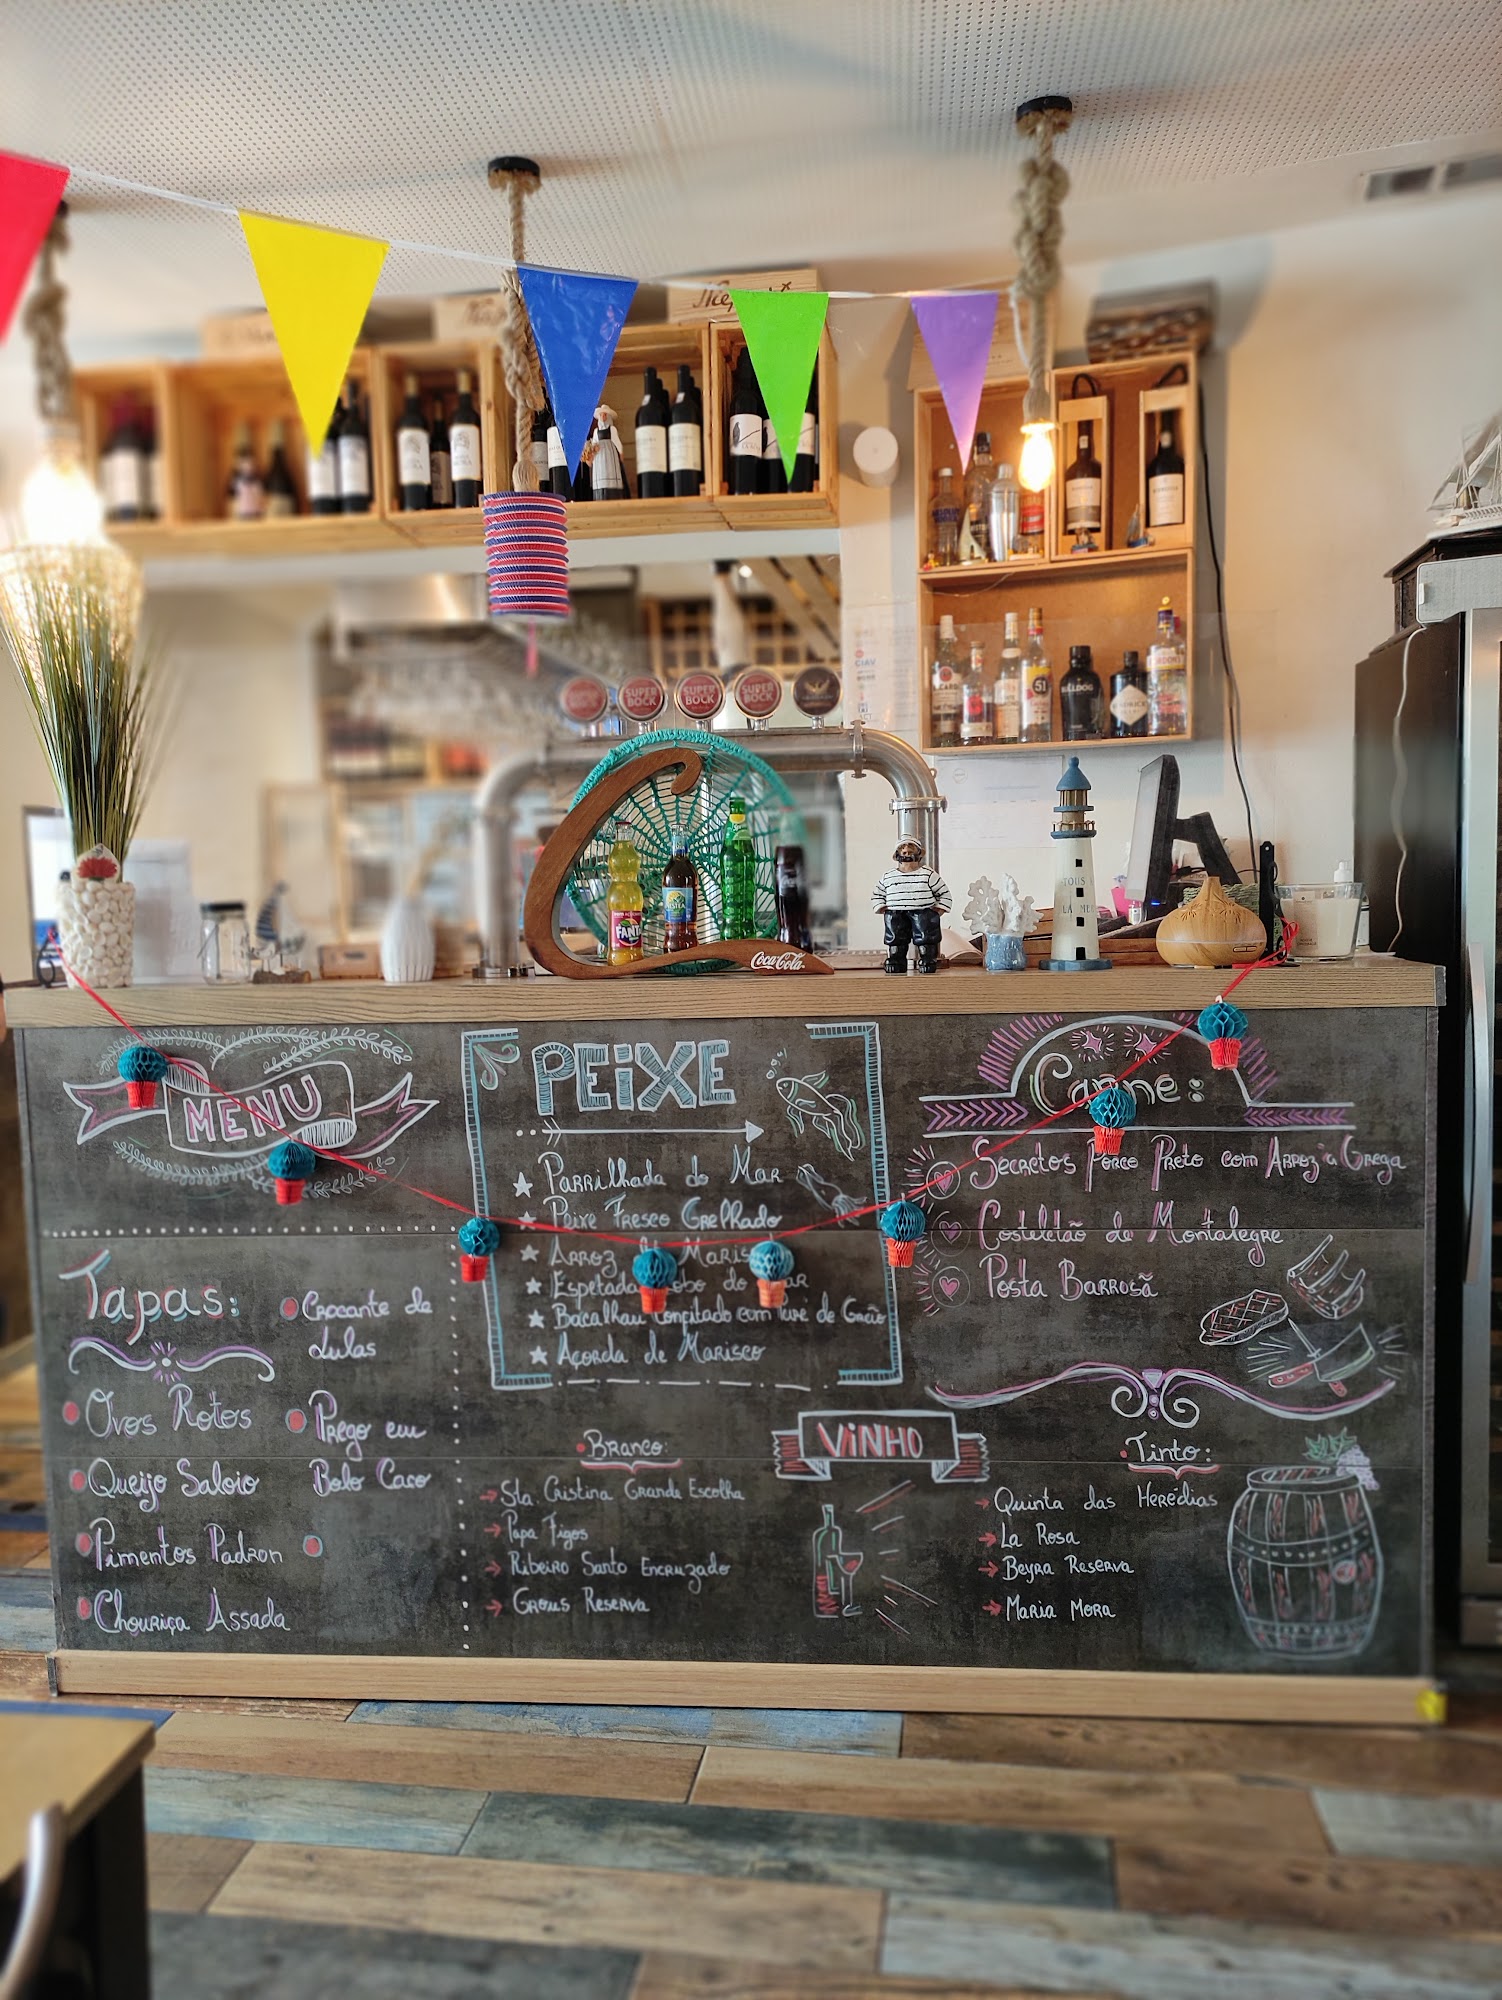 SUPER BOCK
SUPER BOCK
SUPER BOCK
51
BULLDOG
FANTA
Coca-Cola
TOUS
LA ME
MENU
Tapas:
Ovos Rotos
Queijo Saloio
Pimentos Padron
Chouriça Assada
Crocante de
Lulas
Prego em
Bolo Caso
PEiXE
Parrilhada do Mar
Peixe Fresco Grelhado
Arroz de Marisco
Espetada Lobo do Mar
Bacalhau Confitado com de Grão
Açorda de Marisco
Carne:
Secretos Porco Preto com Arroz à Grega
Costeletão de Montalegre
Posta Barrosã
ViNHO
Branco:
Sta. Cristina Grande Escolha
Papa Figos
Ribeiro Santo Encruzado
Grous Reserva
Tinto:
Quinta das Herédias
La Rosa
Beyra Reserva
Maria Mora